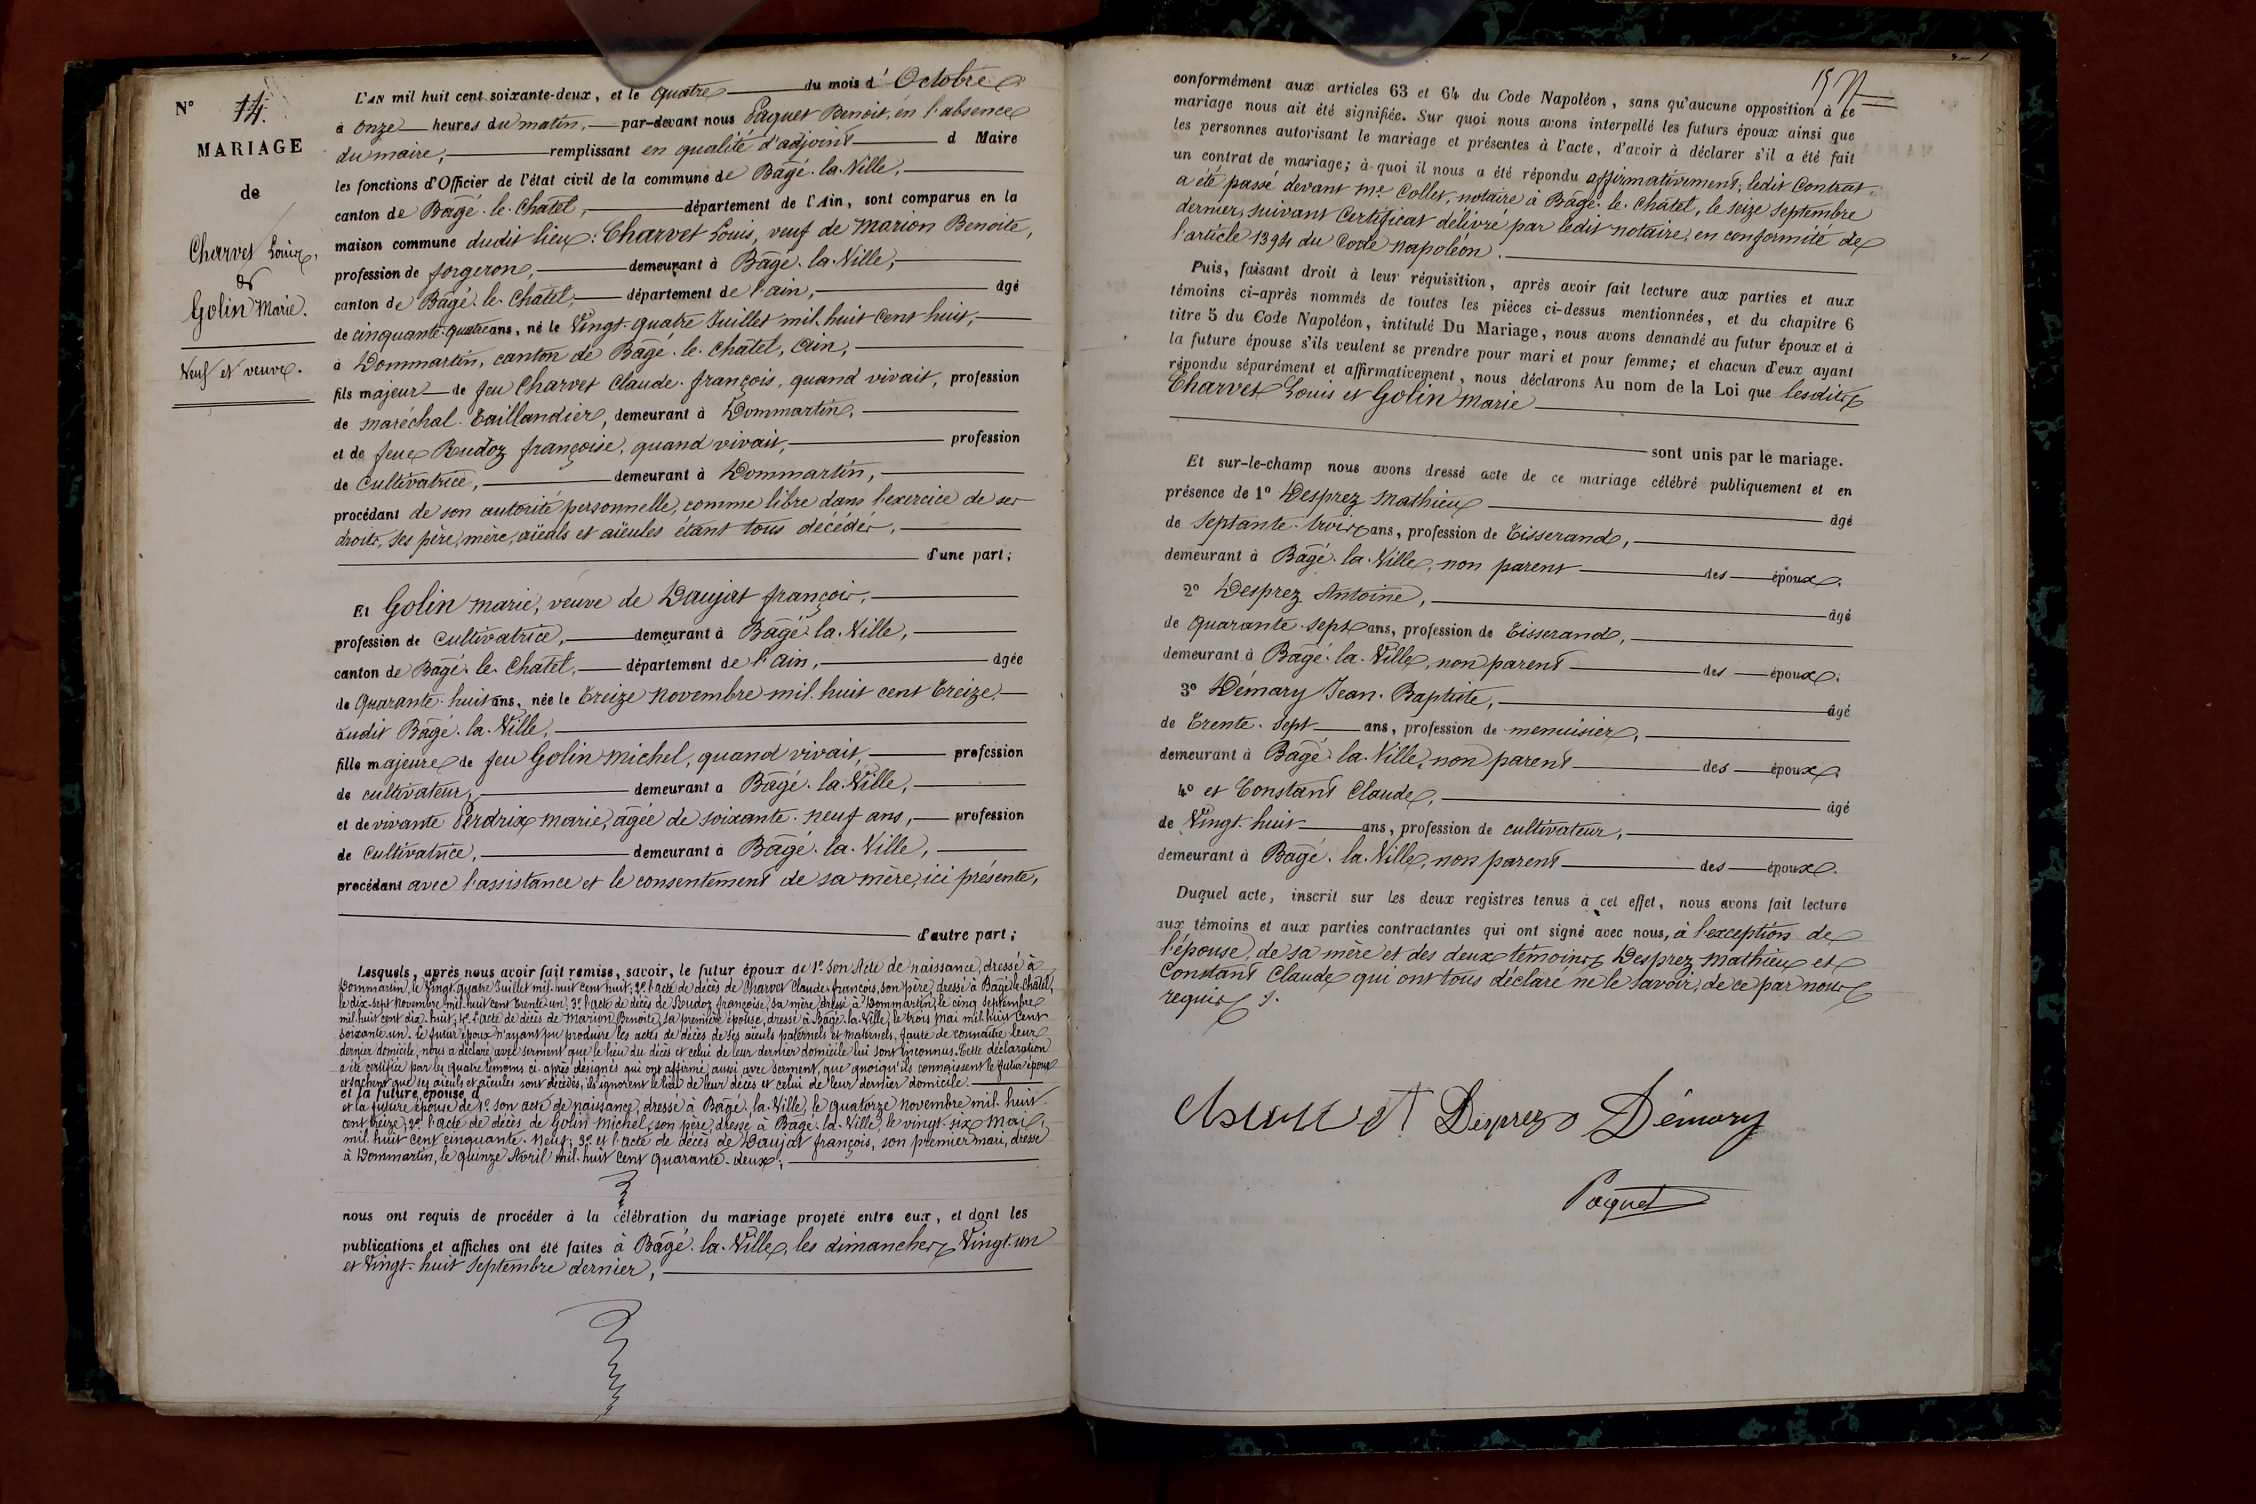 N° 14.
MARIAGE
de
Charvet Louis,
&
Golin Marie.
Veuf et veuve.
L'AN mil huit cent soixante-deux, et le quatre du mois d'Octobre
à onze heures du matin, par-devant nous Paquet Benoit, en l'absence
du maire, remplissant en qualité d'adjoint d Maire
les fonctions d'Officier de l'état civil de la commune de Bâgé-la-Ville,
canton de Bâgé-le-Châtel, département de l'Ain, sont comparus en la
maison commune dudit lieu : Charvet Louis, veuf de Marion Benoite,
profession de forgeron, demeurant à Bâgé-la-Ville,
canton de Bâgé-le-Châtel, département de l'ain, âgé
de cinquante-quatre ans, né le Vingt-quatre Juillet mil-huit cent huit,
à Dommartin, canton de Bâgé-le-Châtel, Ain,
fils majeur de feu Charvet Claude-françois, quand vivait, profession
de maréchal-Taillandier, demeurant à Dommartin,
et de feue Rudoz françoise, quand vivait, profession
de Cultivatrice, demeurant à Dommartin,
procédant de son autorité personnelle, comme libre dans l'exercice de ses
droits, ses père, mère, aïeuls et aïeules étant tous décédés,
d'une part ;
Et Golin marie, veuve de Daujat françois,
profession de Cultivatrice, demeurant à Bâgé-la-Ville,
canton de Bâgé-le-Châtel, département de l'ain, âgée
de Quarante-huit ans, née le Treize novembre mil-huit cent Treize,
audit Bâgé-la-Ville,
fille majeure de feu Golin michel, quand vivait, profession
de cultivateur, demeurant à Bâgé-la-Ville,
et de vivante Perdrix marie, âgée de soixante-neuf ans, profession
de Cultivatrice, demeurant à Bâgé-la-Ville,
procédant avec l'assistance et le consentement de sa mère, ici présente,
d'autre part ;
Lesquels, après nous avoir fait remise, savoir, le futur époux de 1° son Acte de naissance, dressé à
Dommartin, le Vingt-quatre Juillet mil-huit cent huit ; 2° l'acte de décès de Charvet Claude-françois, son père, dressé à Bâgé-le-Châtel,
le dix-sept Novembre mil-huit cent trente-un ; 3° l'acte de décès de Rudoz françoise, sa mère, dressé à Dommartin, le cinq septembre
mil-huit cent dix-huit ; 4° l'acte de décès de Marion Benoite, sa première épouse, dressé à Bâgé-la-Ville, le trois mai mil-huit cent
soixante-un. Le futur époux n'ayant pu produire les actes de décès de ses aïeuls paternels et maternels, faute de connaître leur
dernier domicile, nous a déclaré avec serment que le lieu du décès et celui de leur dernier domicile lui sont inconnus. Cette déclaration
a été certifiée par les quatre témoins ci-après désignés qui ont affirmé, aussi avec serment, que quoiqu'ils connaissent le futur époux
et sachent que ses aïeuls et aïeules sont décédés, ils ignorent le lieu de leur décès et celui de leur dernier domicile.
et la future épouse d
et la future épouse de 1° son acte de naissance, dressé à Bâgé-la-Ville, le quatorze novembre mil-huit
cent treize ; 2° l'acte de décès de Golin Michel, son père, dressé à Bâgé-la-Ville, le vingt-six mai
mil-huit cent cinquante-neuf ; 3° et l'acte de décès de Daujat françois, son premier mari, dressé
à Dommartin, le quinze Avril mil-huit cent quarante-deux ;
nous ont requis de procéder à la célébration du mariage projeté entre eux, et dont les
publications et affiches ont été faites à Bâgé-la-Ville, les dimanches Vingt-un
et Vingt-huit Septembre dernier,
conformément aux articles 63 et 64 du Code Napoléon, sans qu'aucune opposition à ce
mariage nous ait été signifiée. Sur quoi nous avons interpellé les futurs époux ainsi que
les personnes autorisant le mariage et présentes à l'acte, d'avoir à déclarer s'il a été fait
un contrat de mariage ; à quoi il nous a été répondu affirmativement, ledit Contrat
a été passé devant me Collet, notaire à Bâgé-le-Châtel, le seize septembre
dernier, suivant Certificat délivré par ledit notaire, en conformité de
l'article 1394 du Code napoléon.
Puis, faisant droit à leur réquisition, après avoir fait lecture aux parties et aux
témoins ci-après nommés de toutes les pièces ci-dessus mentionnées, et du chapitre 6
titre 5 du Code Napoléon, intitulé Du Mariage, nous avons demandé au futur époux et à
la future épouse s'ils veulent se prendre pour mari et pour femme ; et chacun d'eux ayant
répondu séparément et affirmativement, nous déclarons Au nom de la Loi que lesdits
Charvet Louis et Golin marie
sont unis par le mariage.
Et sur-le-champ nous avons dressé acte de ce mariage célébré publiquement et en
présence de 1° Desprez Mathieu âgé
de septante-trois ans, profession de Tisserand,
demeurant à Bâgé-la-Ville, non parent des époux.
2° Desprez Antoine, âgé
de quarante-sept ans, profession de Tisserand,
demeurant à Bâgé-la-Ville, non parent des époux.
3° Démary Jean-Baptiste, âgé
de Trente-sept ans, profession de menuisier,
demeurant à Bâgé-la-Ville, non parent des époux.
4° et Constant Claude, âgé
de Vingt-huit ans, profession de cultivateur,
demeurant à Bâgé-la-Ville, non parent des époux.
Duquel acte, inscrit sur les deux registres tenus à cet effet, nous avons fait lecture
aux témoins et aux parties contractantes qui ont signé avec nous, à l'exception de
l'épouse, de sa mère et des deux témoins Desprez Mathieu et
Constant Claude qui ont tous déclaré ne le savoir, de ce par nous
requis.
Desprez Démary
Paquet